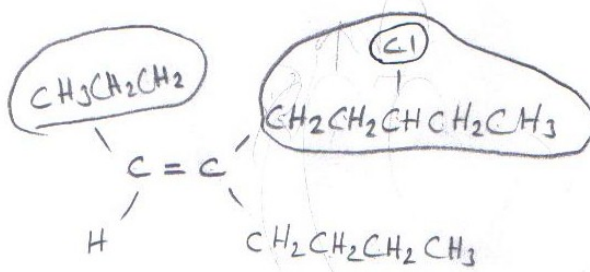 Cl
CH3CH2CH2
CH2CH2CHCH2CH3
C = C
H
CH2CH2CH2CH3